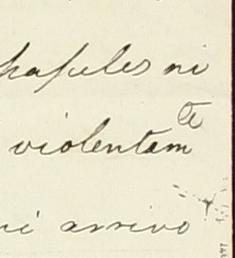 papeles ni
violentam te
ni arrivo